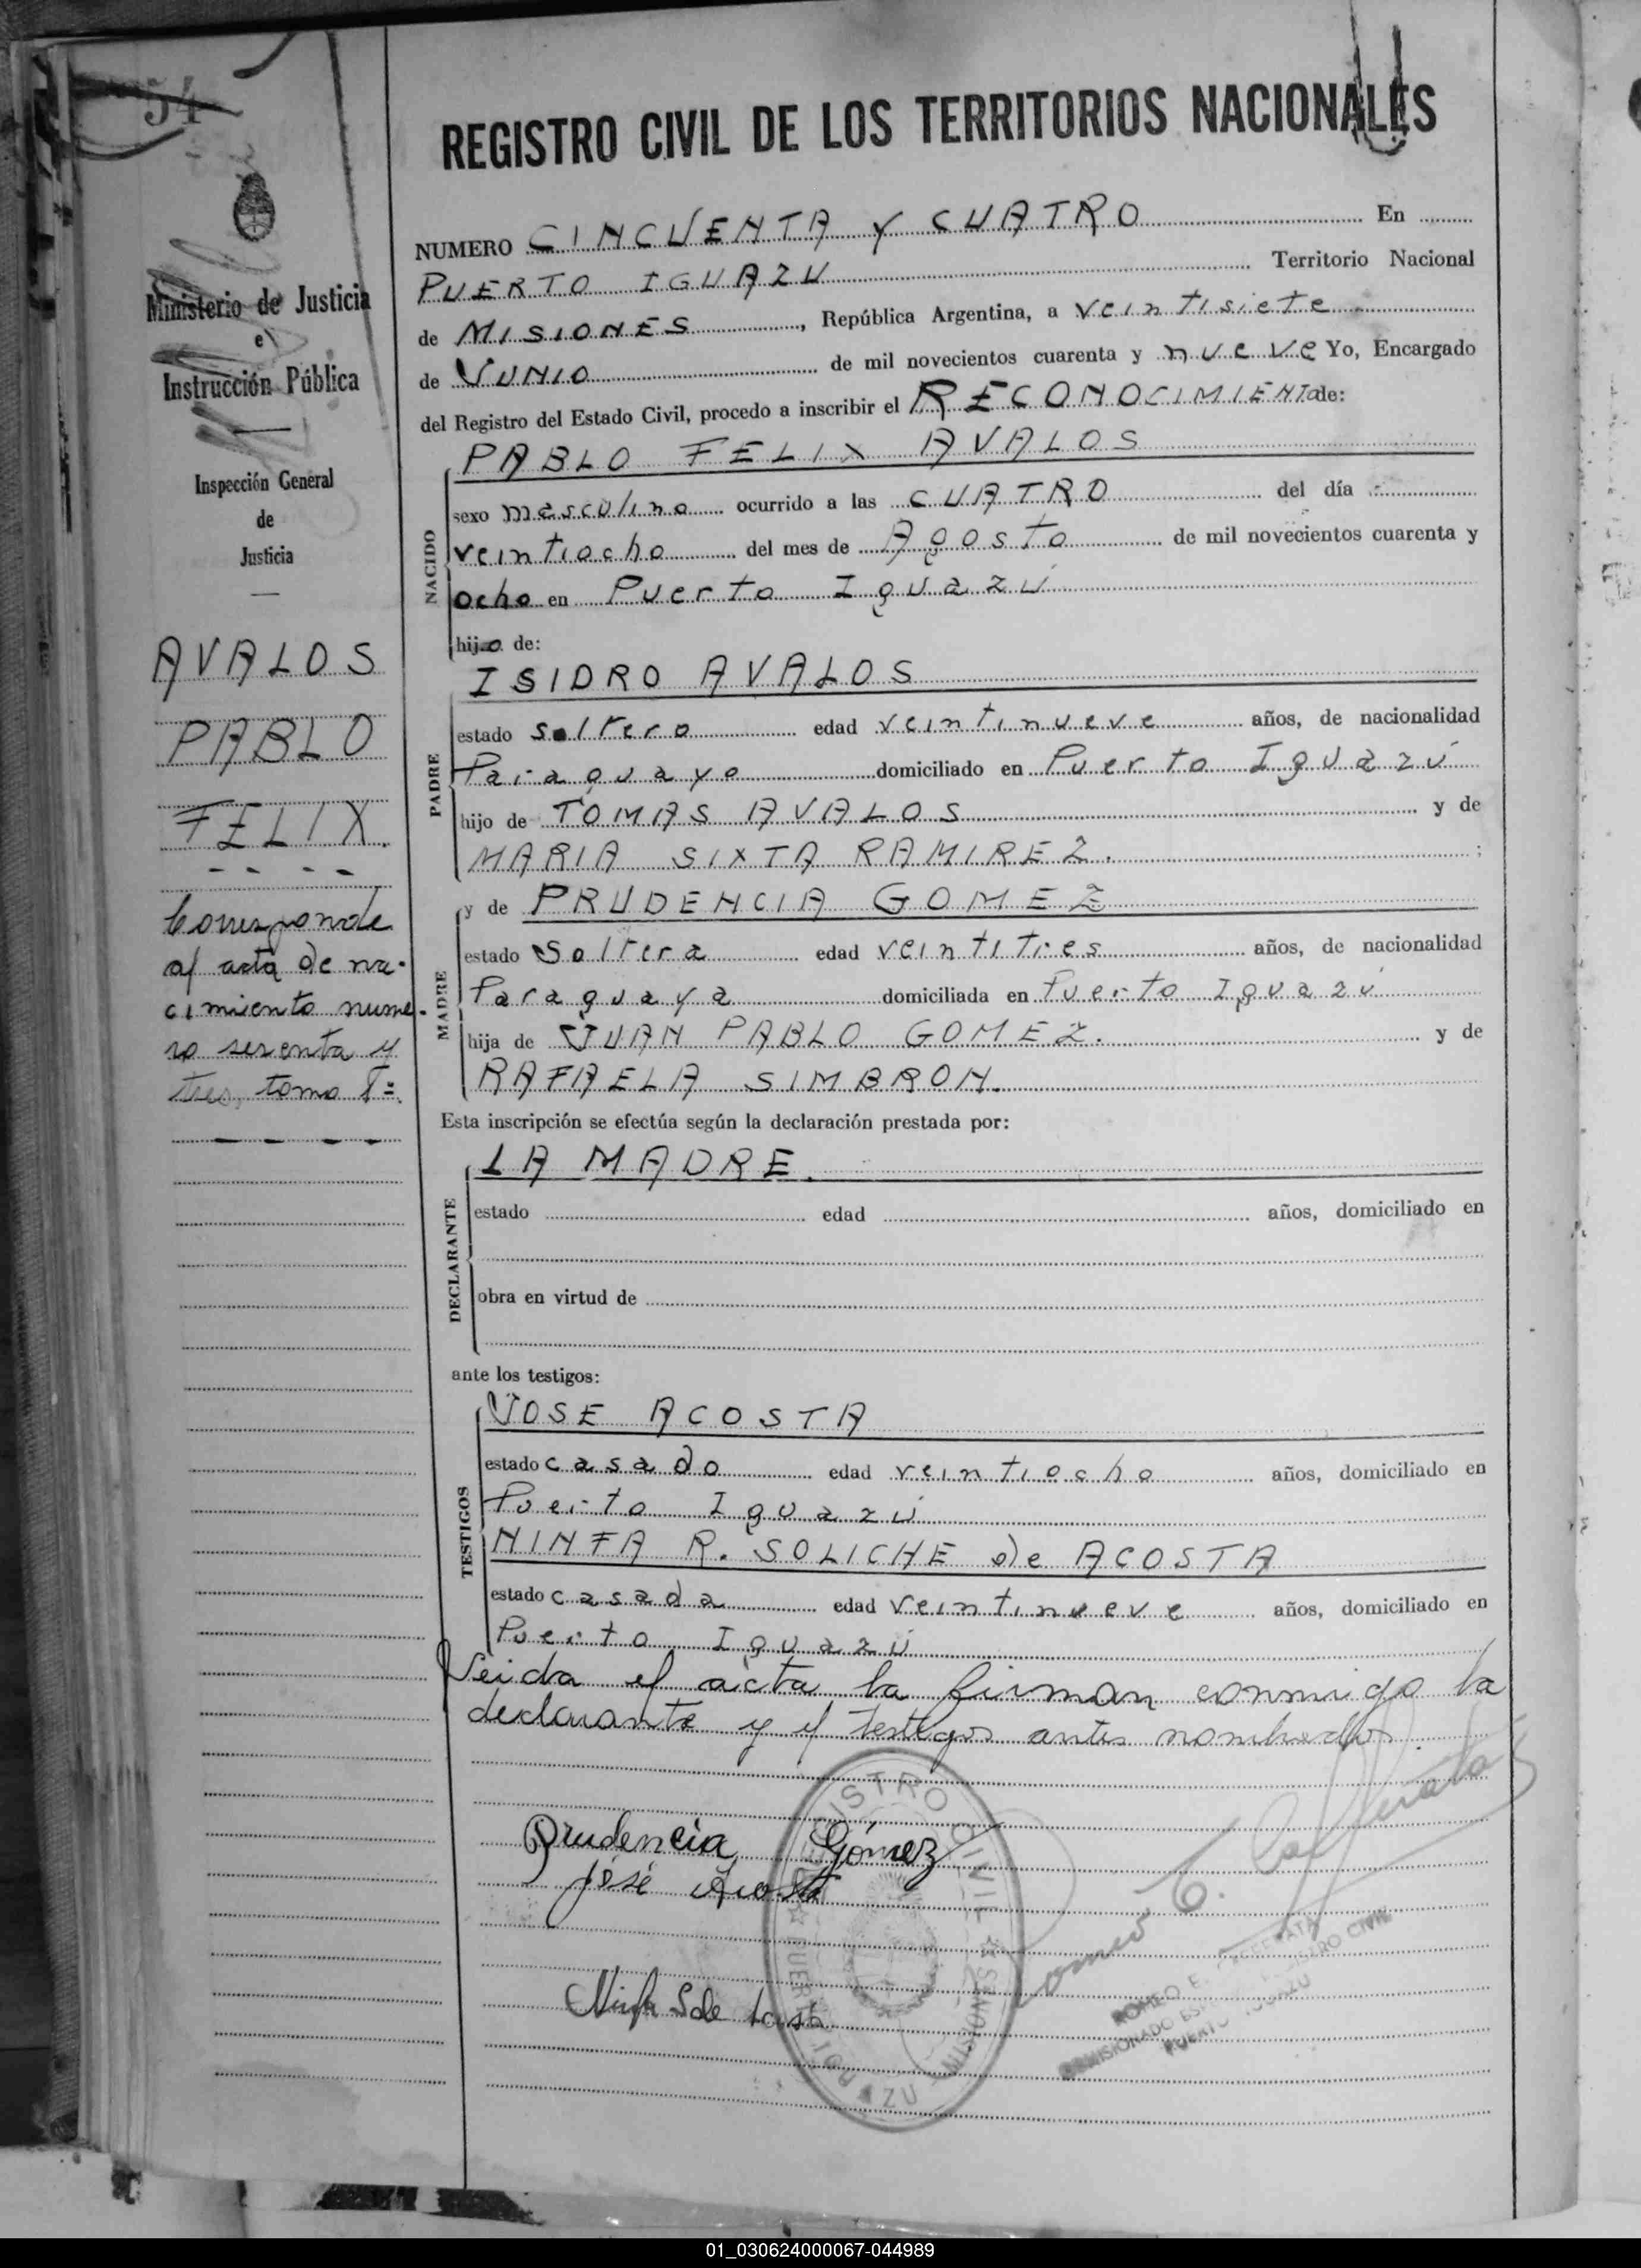 54
Ministerio de Justicia
e
Instrucción Pública
Inspección General
de
Justicia
AVALOS
PABLO
FELIX.
Corresponde
al acta de na-
cimiento nume-
ro sesenta y
tres, tomo I=
REGISTRO CIVIL DE LOS TERRITORIOS NACIONALES
NUMERO CINCUENTA Y CUATRO En
PUERTO IGUAZU Territorio Nacional
de MISIONES, República Argentina, a veintisiete
de JUNIO de mil novecientos cuarenta y nueve Yo, Encargado
del Registro del Estado Civil, procedo a inscribir el RECONOCIMIENTO de:
PABLO FELIX AVALOS
NACIDO
sexo masculino ocurrido a las CUATRO del día
veintiocho del mes de Agosto de mil novecientos cuarenta y
ocho en Puerto Iguazú
hijo de:
ISIDRO AVALOS
PADRE
estado soltero edad veintinueve años, de nacionalidad
Paraguayo domiciliado en Puerto Iguazú
hijo de TOMAS AVALOS y de
MARIA SIXTA RAMIREZ. ;
y de PRUDENCIA GOMEZ
MADRE
estado Soltera edad veintitres años, de nacionalidad
Paraguaya domiciliada en Puerto Iguazú
hija de JUAN PABLO GOMEZ. y de
RAFAELA SIMBRON.
Esta inscripción se efectúa según la declaración prestada por:
LA MADRE.
DECLARANTE
estado edad años, domiciliado en
obra en virtud de
ante los testigos:
JOSE ACOSTA
TESTIGOS
estado casado edad veintiocho años, domiciliado en
Puerto Iguazú
NINFA R. SOLICHE de ACOSTA
estado casada edad veintinueve años, domiciliado en
Puerto Iguazú
Leida el acta la firman conmigo la
declarante y el testigos antes nombrados.
Prudencia Gómez
José Acosta
REGISTRO CIVIL
MISIONES
Romeo E.
ROMEO E.
REGISTRO CIVIL
PUERTO IGUAZU
01_030624000067-044989